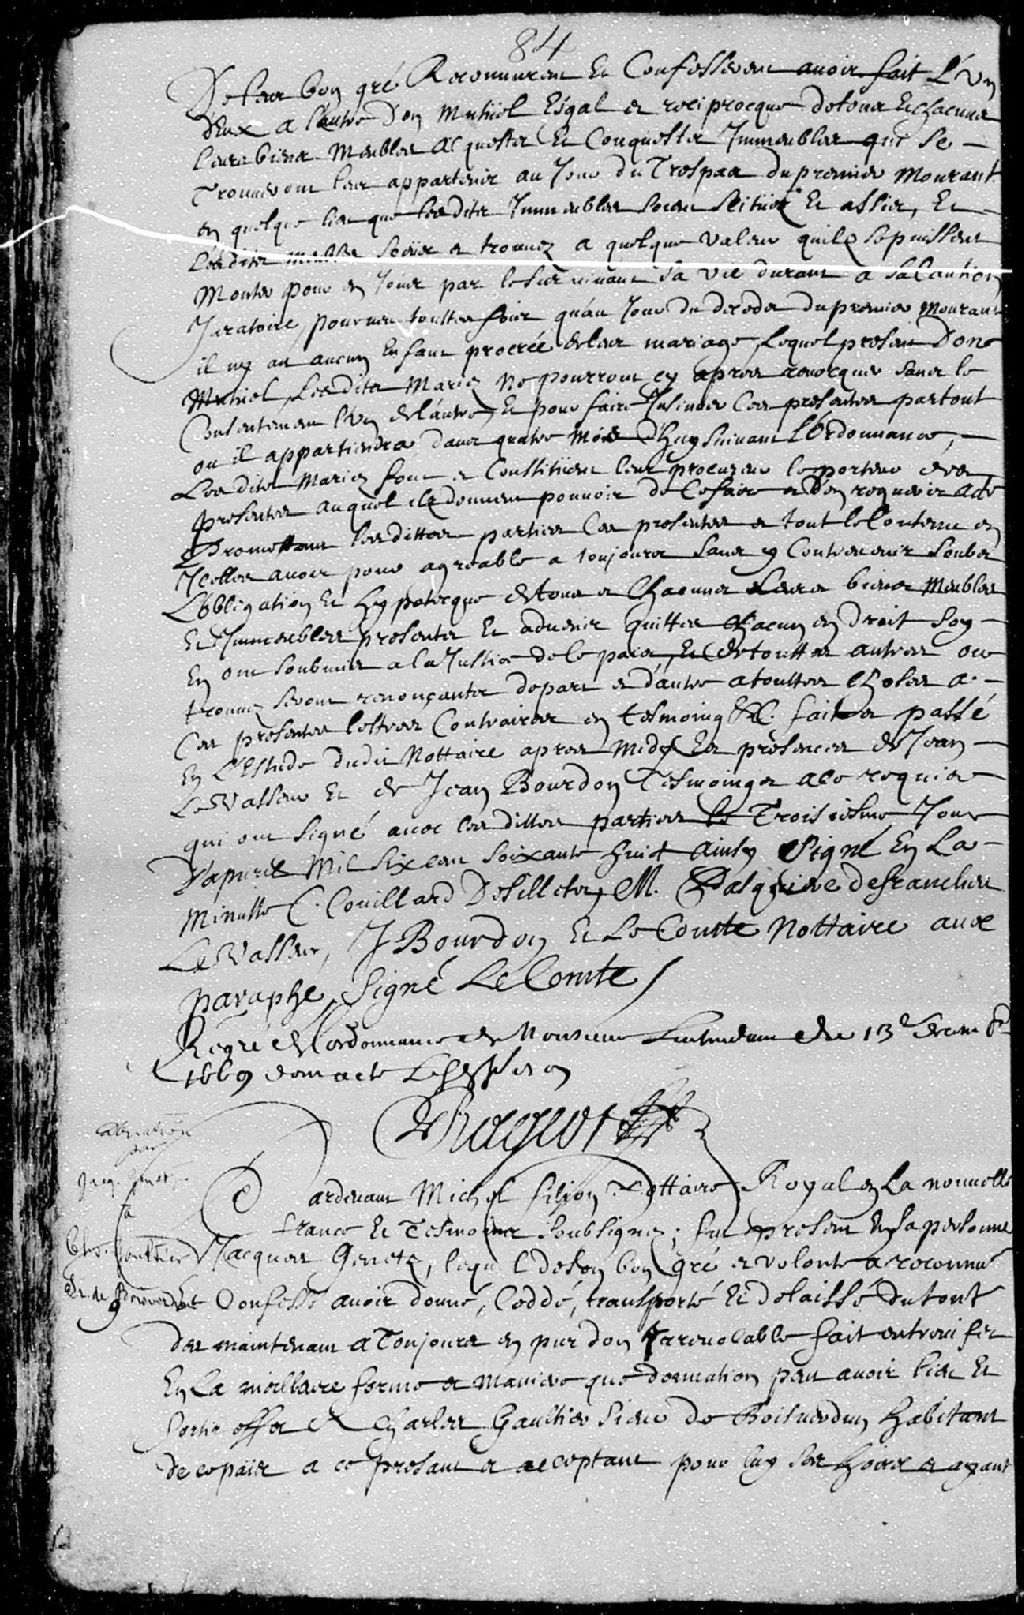 84
De leur bon gré Reconnurent Et Confesserent avoir fait L'Un
d'Eux a l'autre Don Mutuel Esgal et reciprocque de tous Et chacuns
leurs biens Meubles acquests Et Conquests Immeubles qui se
Trouveront leur appartenir au Jour du Trespas du premier mourant
en quelque lieu que lesdits Immeubles soient scituez Et assis, Et
Lesdits meubles soient et trouvez a quelque valeur quils se puissent
Monter pour en Jouir par le survivant sa vie durant a sa Caution
Juratoire pourveu touttes fois qu'au Jour du deceds du premier mourant
il ny ait aucun Enfant procréé de leur mariage, Lequel present Don
Mutuel Lesdits Mariez ne pourront cy apres revocquer sans le
Consentement L'un de l'autre, Et pour faire Insinuer Ces presentes partout
ou il appartiendra dans quatre mois d'huy suivant L'Ordonnance,
Lesdits Mariez font et Constituent leur procureur le porteur des
presentes auquel ils donnent pouvoir de Ce faire et d'en requerir acte
Promettant lesdittes parties Ces presentes et tout le Contenu en
Icelles avoir pour agreable a toujours sans y Contrevenir soubs
L'Obligation Et hypotecque de tous et Chacuns Leurs biens Meubles
Et Immeubles presents Et advenir quittes Chacun en droit soy
En ont soubmis a la Justice de ce païs, Et de touttes autres ou
trouvez seront renonçants depart et d'autre a touttes choses a
Ces presentes lettres Contraires en tesmoing &C. fait et passé
En L'Estude dudit Nottaire apres midy Es presences de Jean
Levasseur Et de Jean Bourdon Tesmoings a ce requis
qui ont signé avec lesdittes parties le Troisiesme Jour
d'apvril Mil six cent soixante huict ainsy Signé En La
Minutte C. Couillard Desillets, M. Pasquiere defranclieu
LeVasseur, J Bourdon Et LeComte Nottaire avec
paraphe, Signé LeComte /
Regré de l'ordonnance de Monsieur Lintendant du 13e
1669 dont acte
Rageot
donation
par
Jacq. Genets
a
Chs. Gaulthier
Sr. de Boisverdun
Pardevant Michel fillion Nottaire Royal en La nouvelle
france Et Tesmoins soubsignez; fut present En sa personne
Jacques Genetz, lequel de son bon gré et volonté a reconnu
et Confessé avoir donné, Ceddé, transporté Et delaissé du tout
des maintenant a Toujours en pur don Irrevocable fait entre vifs
En La meilleure forme et maniere que donnation peut avoir lieu Et
sortir effet A Charles Gaultier Sieur de Boisverdun habitant
de ce païs a ce present et acceptant pour luy ses hoirs et ayant